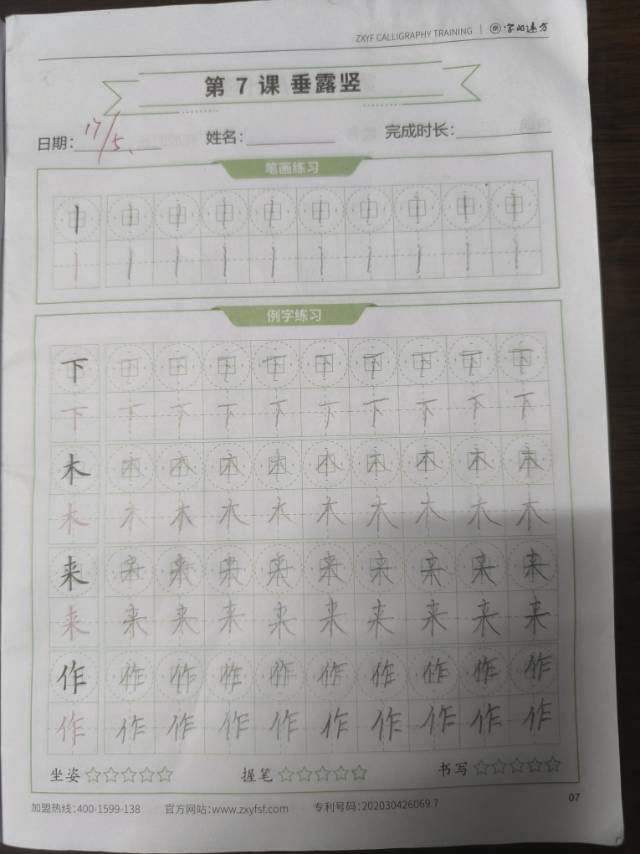 ZXYF CALLIGRAPHY TRAINING | 字的远方
第 7 课 垂露竖
日期: 17/5. 姓名: 完成时长:
笔画练习
例字练习
下 下 下 下 下 下 下 下 下 下
下 下 下 下 下 下 下 下 下 下
木 木 木 木 木 木 木 木 木 木
木 木 木 木 木 木 木 木 木 木
来 来 来 来 来 来 来 来 来 来
来 来 来 来 来 来 来 来 来 来
作 作 作 作 作 作 作 作 作 作
作 作 作 作 作 作 作 作 作 作
坐姿 握笔 书写
07
加盟热线:400-1599-138 官方网站:www.zxyfsf.com 专利号码:202030426069.7